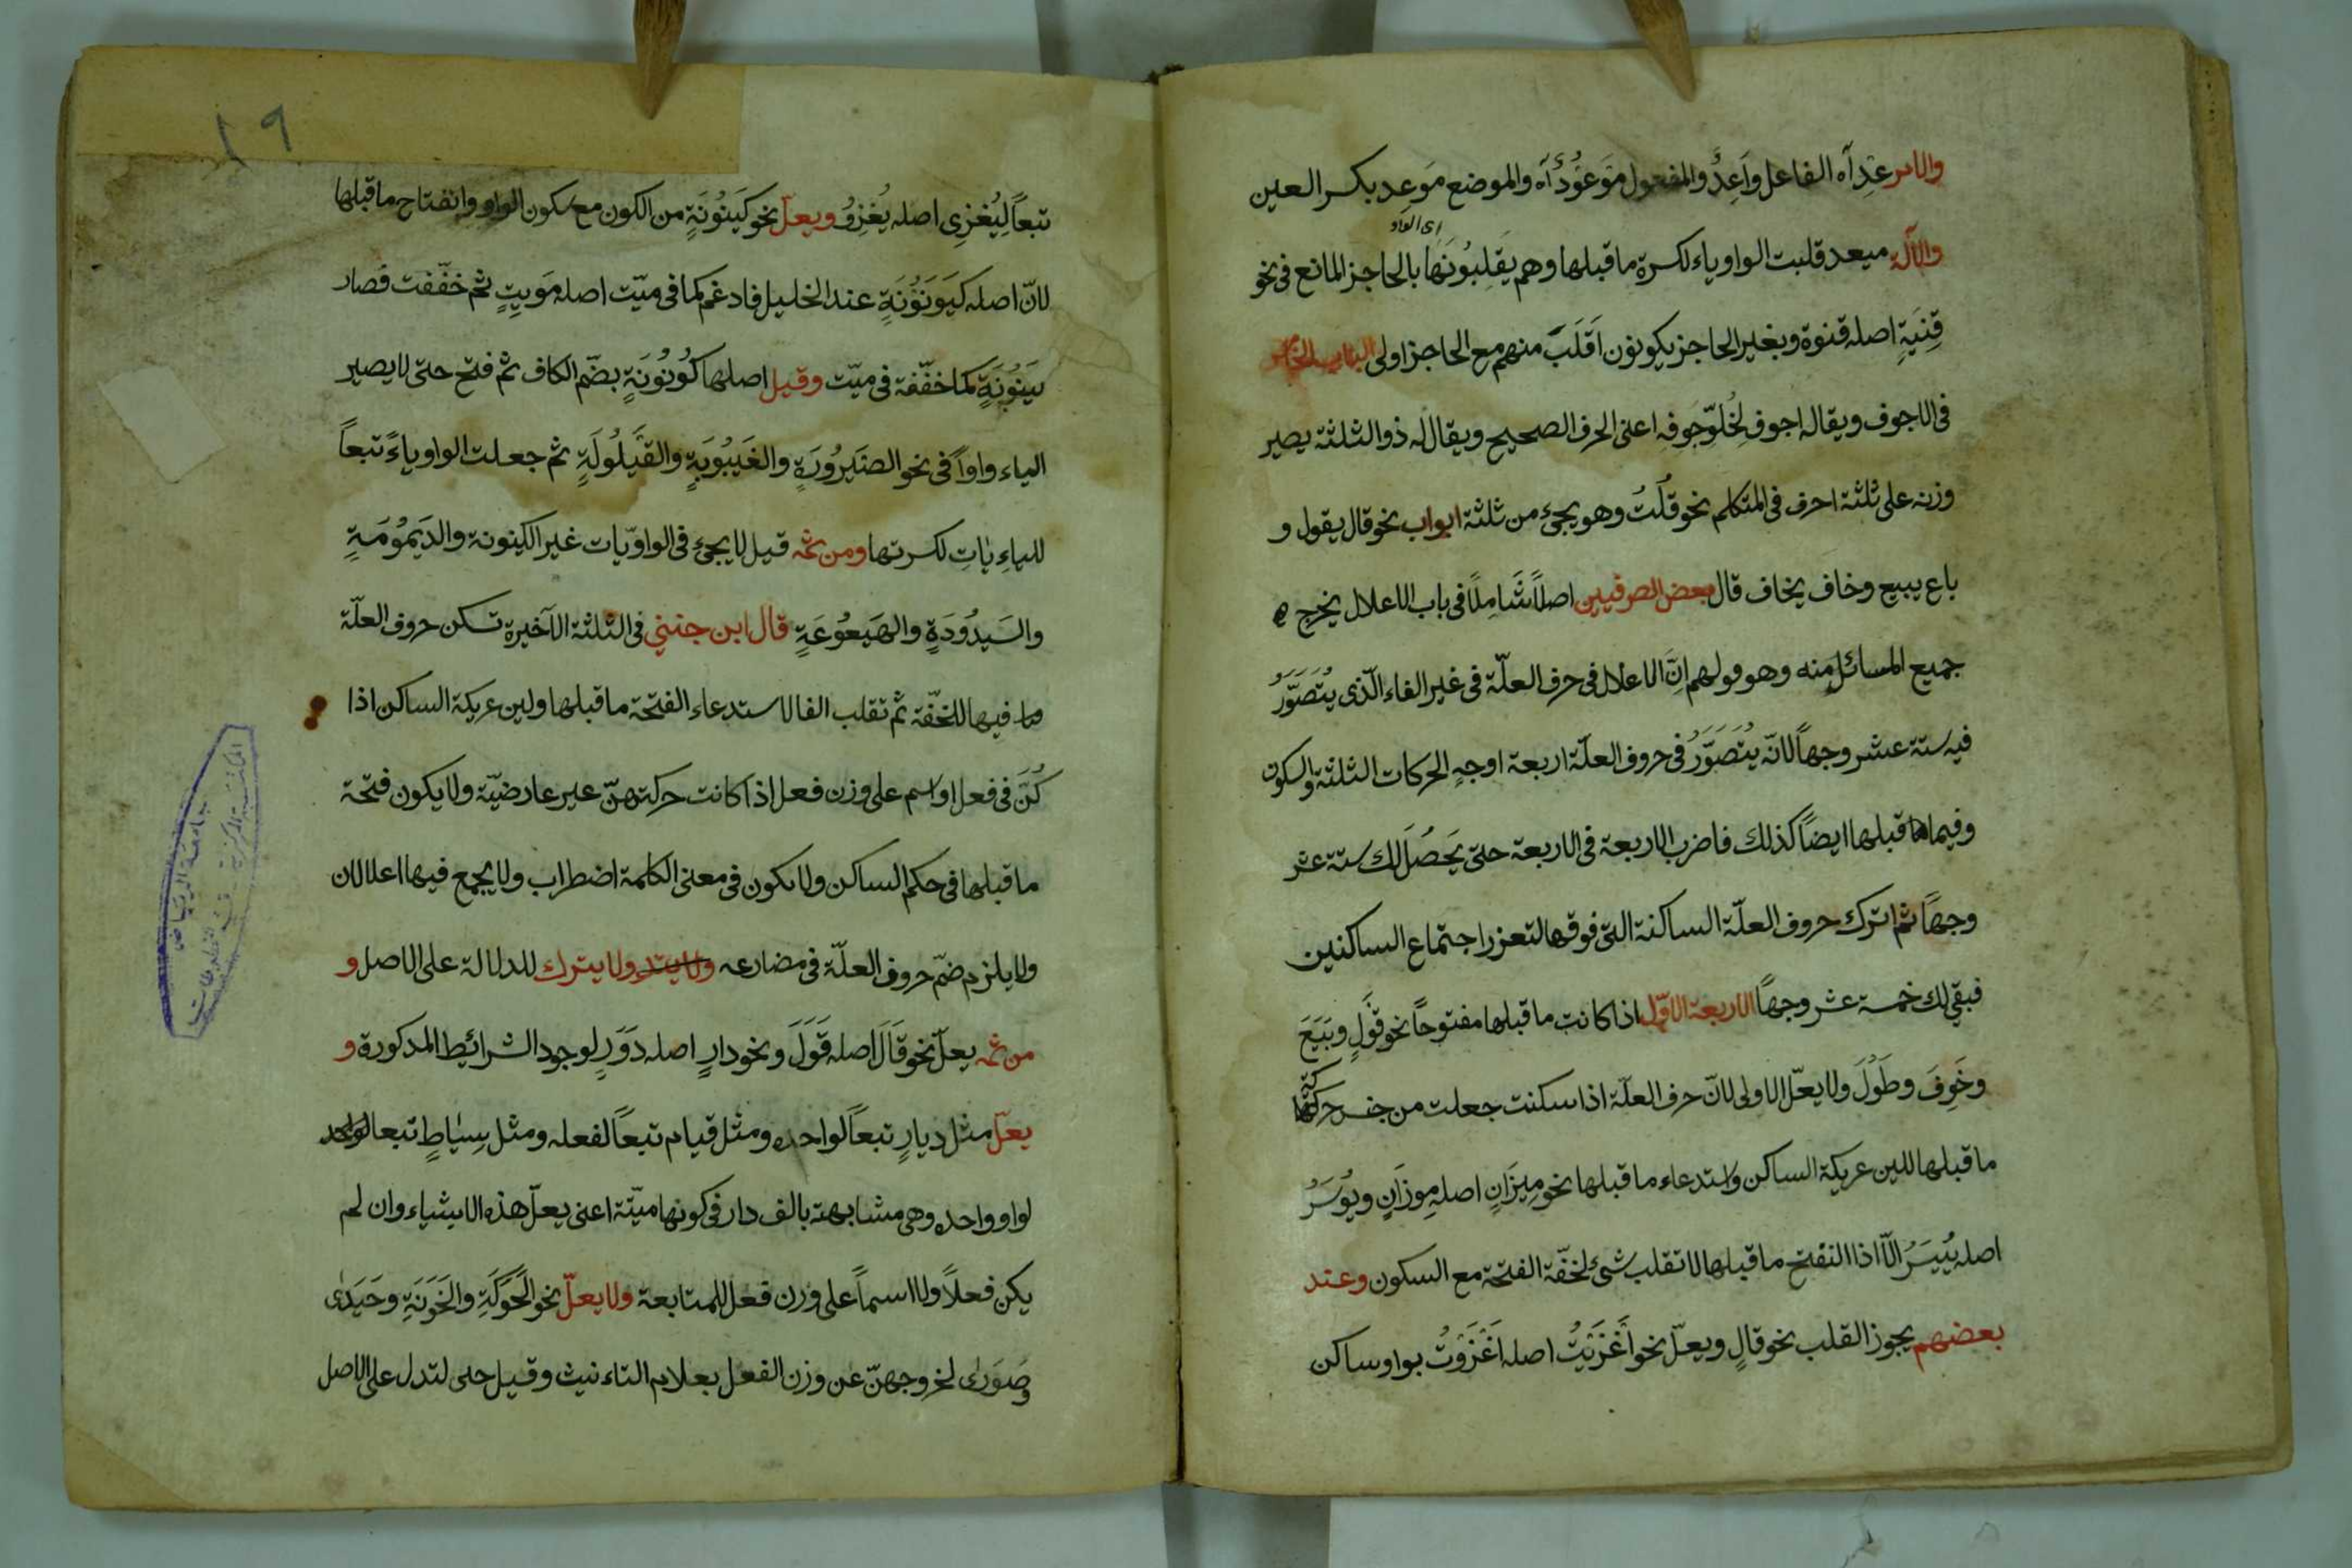 والامر عِدْ آه الفاعل وَاَعِدٌ والمفعول مَوْعُوْدٌ آه والموضع مَوعِد بكسر العين
اى الواو
والآلة ميعد قلبت الواو ياء لكسرة ما قبلها وهم يَقلِبُونَها بالحاجز المانع فى نحو
قِنيَةٍ اصله قنوة وبغير الحاجز يكونون اَقلَبَ منهم مع الحاجز اولى الباب الخامس
فى الاجوف ويقال له اجوف لِخُلوّ جَوفِه اعنى الحرف الصحيح ويقال له ذو الثلثة يصير
وزنه على ثلثة احرف فى المتكلم نحو قُلتُ وهو يجئ من ثلثة ابواب نحو قال يقول و
باع يبيع وخاف يخاف قال بعض الصرفيين اصلاً شَامِلًا فى باب الاعلال يخرج
جميع المسائل منه وهو قولهم اِنَّ الاعلال فى حرف العلّة فى غير الفاء الّذى يُتَصَوَّرُ
فيه ستة عشر وجهاً لانّه يُتَصَوَّرُ فى حروف العلّة اربعة اوجهٍ الحركات الثلثة والسكون
وفيما قبلها ايضاً كذلك فاضرب الاربعة فى الاربعة حتى يَحصُلَ لك ستة عشر
وجهاً ثم اترك حروف العلّة الساكنة التى فوقها لتعزر اجتماع الساكنين
فبقى لك خمسة عشر وجهاً الاربعة الاوّل اذا كانت ما قبلها مفتوحاً نحو قَولٍ وبَيَعَ
وخَوِفَ وطَوُلَ ولا يعلّ الاولى لانّ حرف العلّة اذا سكنت جعلت من جنس حركة
ما قبلها للين عريكة الساكن واستدعاء ما قبلها نحو مِيزَانٍ اصله مِوزَانٍ ويُوسَرُ
اصله يُيسَرُ الّا اذا انفتح ما قبلها لا تقلب شئ لخفّة الفتحة مع السكون وعند
بعضهم يجوز القلب نحو قالٍ ويعلّ نحو اَغزَيتُ اصله اَغزَوتُ بواو ساكن
١٩
تبعاً لِيُغزِى اصله يُغزِوُ ويعلّ نحو كَينُونَةٍ من الكون مع سكون الواو وانفتاح ما قبلها
لانّ اصله كَيوَنُونَةٍ عند الخليل فادغم كما فى ميّت اصله مَويِتٍ ثم خفّفت فصار
كَينُونَةٍ كما خفّفة فى ميّت وقيل اصلها كُونُونَةٍ بضمّ الكاف ثم فتح حتى لا يصير
الياء واواً فى نحو الصَيرُورَةِ والغَيبُوبَةِ والقَيلُولَةِ ثم جعلت الواو ياءً تبعاً
للياءِ يٰاتِ لكسرتها ومن ثمه قيل لا يجئ فى الواويّات غير الكينونة والدَيمُومَةِ
والسَيدُودَةِ والهَيعُوعَةِ قال ابن جنى فى الثلثة الآخيرة تسكن حروف العلّة
فيها للخفّة ثم تقلب الفا لاستدعاء الفتحة ما قبلها ولين عريكة الساكن اذا
كُنَّ فى فعل او اسم على وزن فعل اذا كانت حركتهنّ غير عارضيّة ولا يكون فتحة
ما قبلها فى حكم الساكن ولا يكون فى معنى الكلمة اضطراب ولا يجمع فيها اعلالان
ولا يلزم ضمّ حروف العلّة فى مضارعه ولا يترك للدلالة على الاصل و
من ثمه يعلّ نحو قَالَ اصله قَوَلَ ونحو دارٍ اصله دَوَرٍ لوجود الشرائط المذكورة و
يعلّ مثل ديارٍ تبعاً لواحده ومثل قيام تبعاً لفعله ومثل سِيٰاطٍ تبعا لواحد
لواو واحده وهى مشابهة بالف دار فى كونها ميّتة اعنى يعلّ هذه الاشياء وان لم
يكن فعلاً ولا اسماً على وزن فعل للمتابعة ولا يعلّ نحو الحَوَكَةِ والخَوَنَةِ وحَيَدى
وصَوَرى لخروجهنّ عن وزن الفعل بعلام التاءنيث وقيل حتى لتدل على الاصل